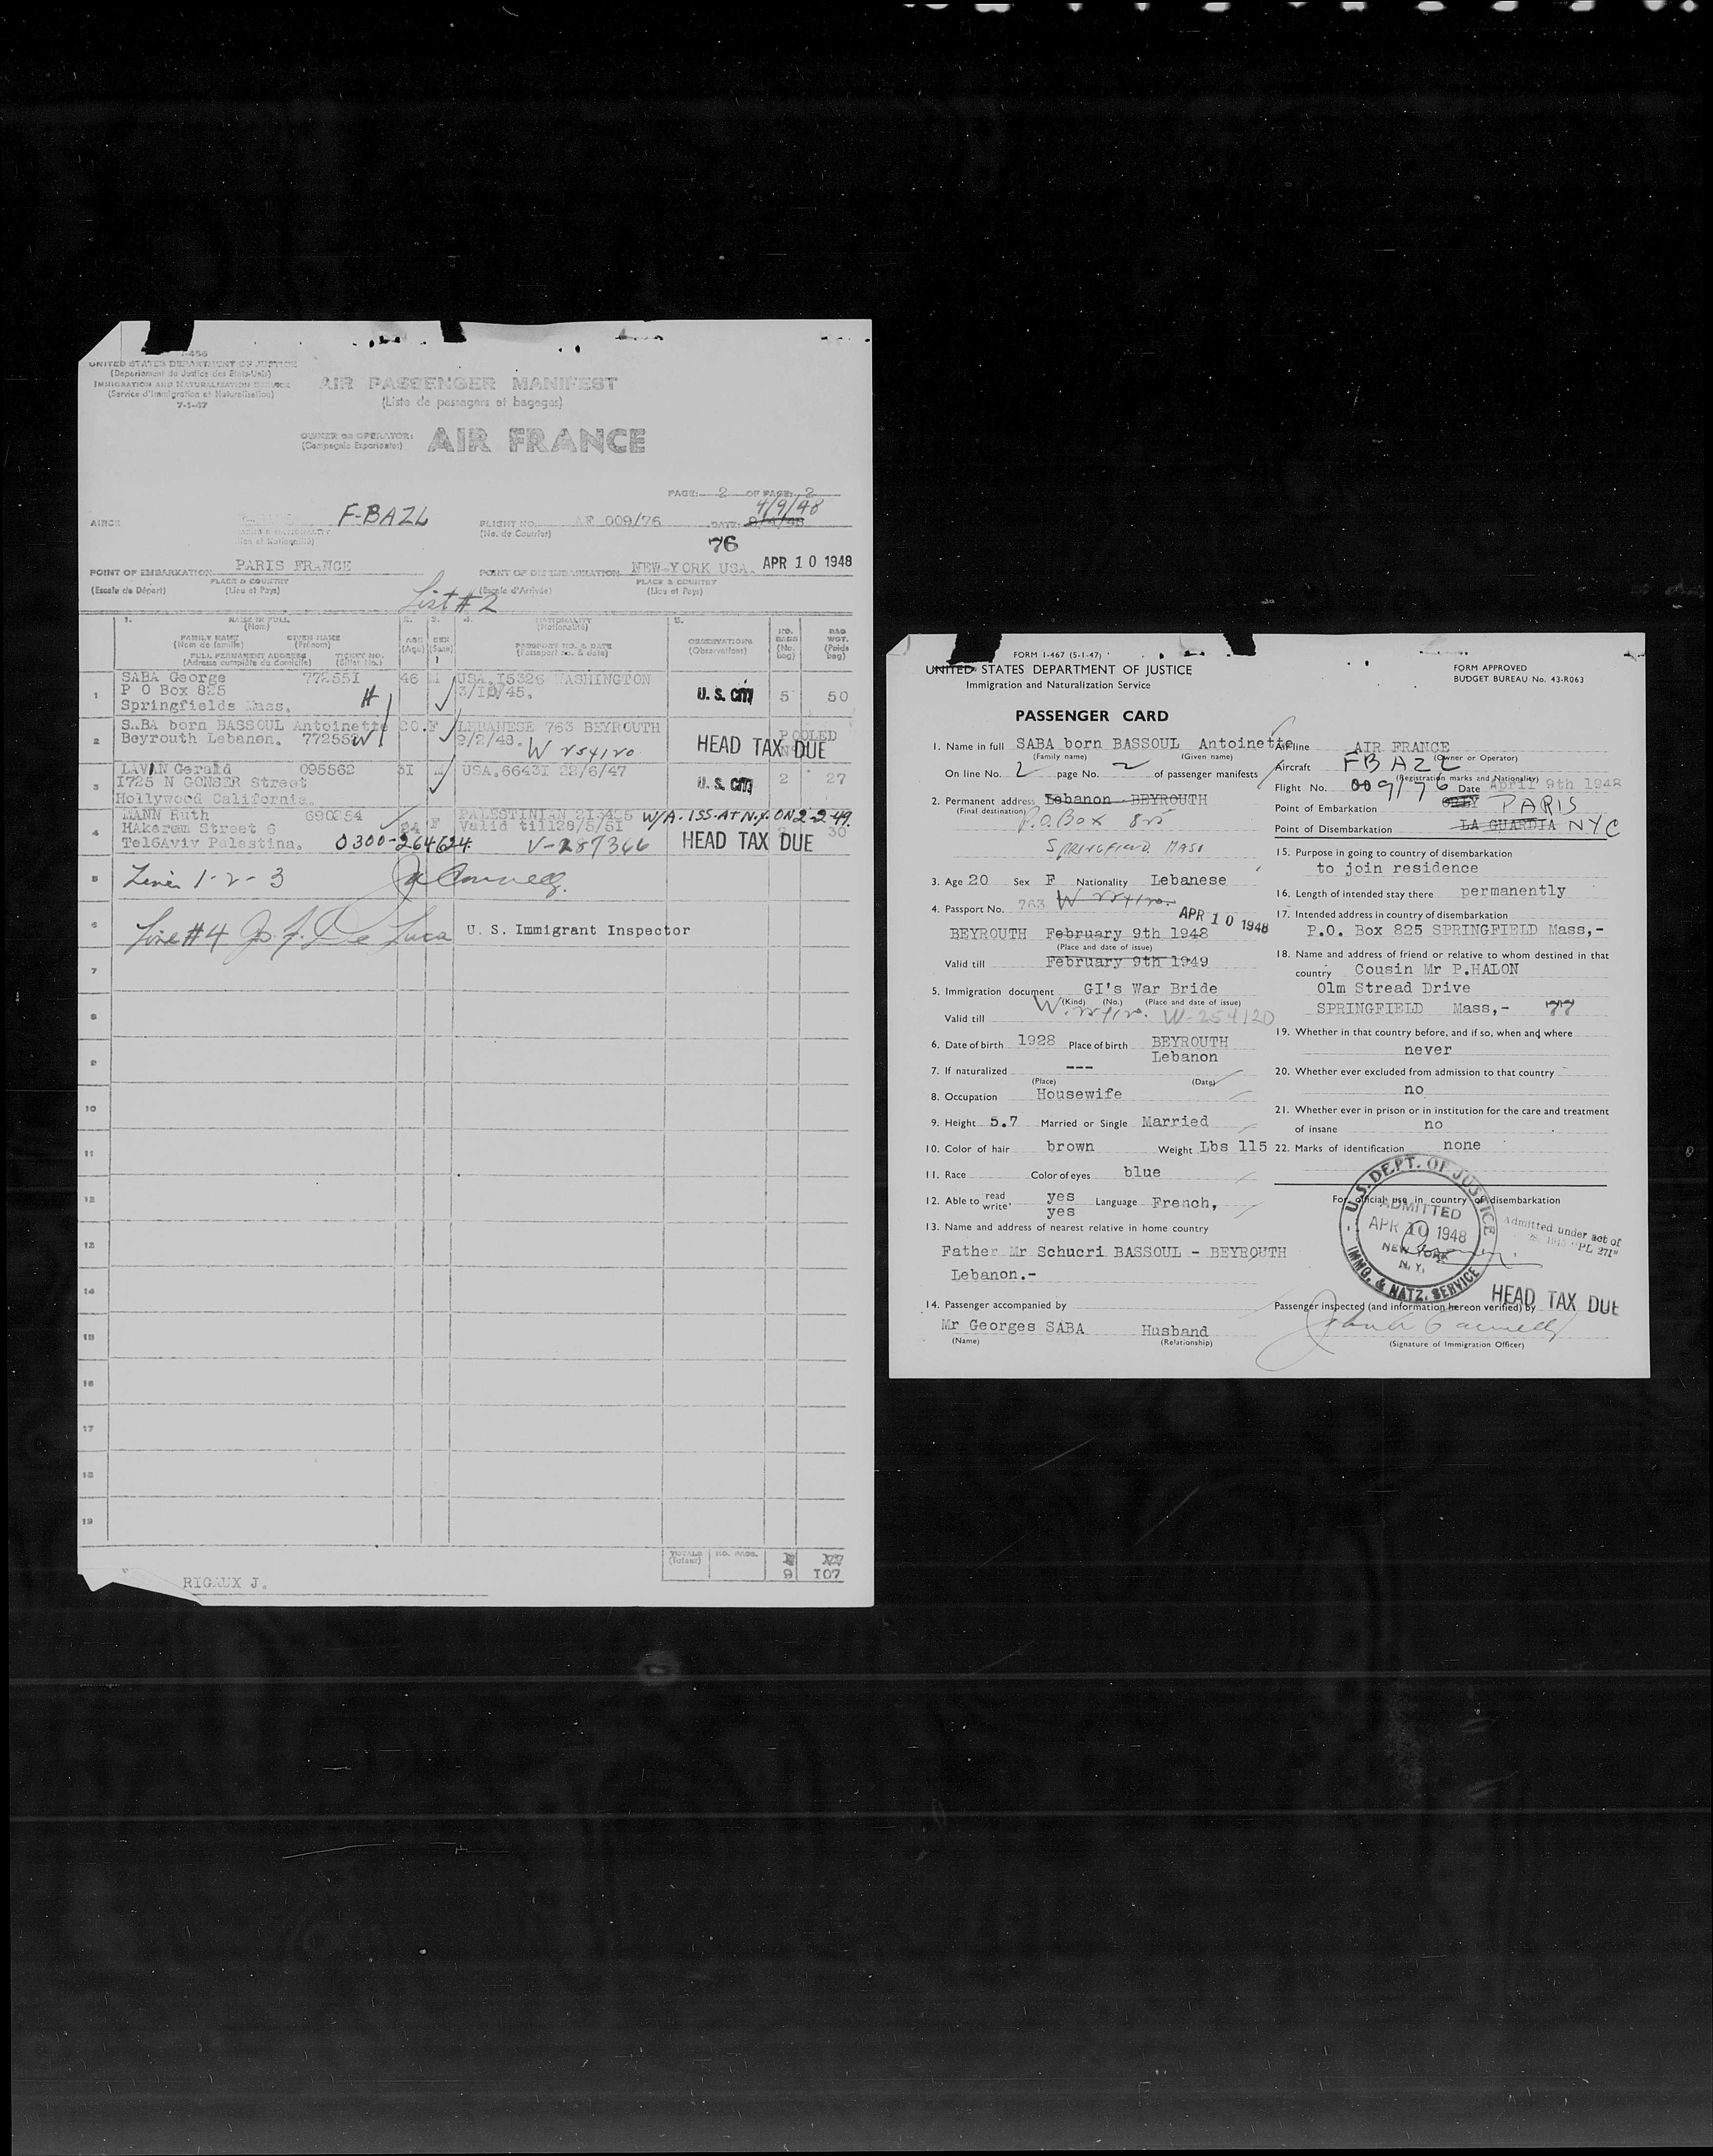 I-466
UNITED STATES DEPARTMENT OF JUSTICE
(Departement de Justice des Etats-Unis)
IMMIGRATION AND NATURALIZATION SERVICE
(Service d'Immigration et Naturalisation)
7-1-47
AIR PASSENGER MANIFEST
(Liste de passagers et bagages)
OWNER OR OPERATOR:
AIR FRANCE
PAGE: 2 OF PAGE: 2
4/9/48
F-BAZL
FLIGHT NO. AF 009/76 DATE:
(No. de Courrier)
76
POINT OF EMBARKATION PARIS FRANCE
PLACE & COUNTRY
(Escale de Départ) (Lieu et Pays)
POINT OF DISEMBARKATION NEW-YORK USA. APR 10 1948
PLACE & COUNTRY
(Escale d'Arrivée) (Lieu et Pays)
List #2
1. NAME IN FULL (Nom)
FAMILY NAME GIVEN NAME
(Nom de famille) (Prénom)
FULL PERMANENT ADDRESS TICKET NO.
(Adresse complète du domicile) (Billet No.)
2. AGE (Age)
3. SEX (Sexe)
4. NATIONALITY (Nationalité)
PASSPORT NO. & DATE
(Passeport No. & date)
5. OBSERVATIONS (Observations)
NO. BAGS (No. bag)
BAG WGT. (Poids bag)
1 SABA George 772551 46 M USA.15326 WASHINGTON
P O Box 825 H 3/10/45. U.S. cit 5 50
Springfields Mass.
2 SABA born BASSOUL Antoinette 20. F LEBANESE 763 BEYROUTH POOLED
Beyrouth Lebanon. W 9/2/48. W 254120 HEAD TAX DUE
3 LAVAN Gerald 095562 31 M USA.66431 22/6/47
1725 N GONSER Street U.S. cit 2 27
Hollywood California.
4 MANN Ruth 690254 24 F PALESTINIAN 213405 W/A. ISS. AT N.Y. ON 2-2-49.
HAkerem Street 6 Valid till28/5/51 30
TelGAviv Palestina. 0300-264624 V-287366 HEAD TAX DUE
5 Lines 1-2-3
6 Line #4 Jo. J. De Luca U. S. Immigrant Inspector
7
8
9
10
11
12
13
14
15
16
17
18
19
TOTALS (Totaux) NO. PASS. 9 107
RIGAUX J.
FORM I-467 (5-1-47)
UNITED STATES DEPARTMENT OF JUSTICE
Immigration and Naturalization Service
FORM APPROVED
BUDGET BUREAU No. 43-R063
PASSENGER CARD
1. Name in full SABA born BASSOUL Antoinette
(Family name) (Given name)
On line No. 2 page No. 2 of passenger manifests
2. Permanent address Lebanon - BEYROUTH
(Final destination) P.O. Box 825
SPRINGFIELD MASS
3. Age 20 Sex F Nationality Lebanese
4. Passport No. 763 W 254120. APR 10 1948
BEYROUTH February 9th 1948
(Place and date of issue)
Valid till February 9th 1949
5. Immigration document GI's War Bride
(Kind) (No.) (Place and date of issue)
Valid till W. 254120. W-254120
6. Date of birth 1928 Place of birth BEYROUTH
Lebanon
7. If naturalized ---
(Place) (Date)
8. Occupation Housewife
9. Height 5.7 Married or Single Married
10. Color of hair brown Weight Lbs 115
11. Race Color of eyes blue
12. Able to read yes Language French,
write yes
13. Name and address of nearest relative in home country
Father Mr Schucri BASSOUL - BEYROUTH
Lebanon.-
14. Passenger accompanied by
Mr Georges SABA Husband
(Name) (Relationship)
Airline AIR FRANCE
(Owner or Operator)
Aircraft FBAZL
(Registration marks and Nationality)
Flight No. 009/76 Date April 9th 1948
Point of Embarkation ORLY PARIS
Point of Disembarkation LA GUARDIA NYC
15. Purpose in going to country of disembarkation
to join residence
16. Length of intended stay there permanently
17. Intended address in country of disembarkation
P.O. Box 825 SPRINGFIELD Mass,-
18. Name and address of friend or relative to whom destined in that
country Cousin Mr P.HALON
Olm Stread Drive
SPRINGFIELD Mass,-
19. Whether in that country before, and if so, when and where
never
20. Whether ever excluded from admission to that country
no
21. Whether ever in prison or in institution for the care and treatment
of insane no
22. Marks of identification none
For official use in country of disembarkation
U.S. DEPT. OF JUSTICE
ADMITTED
APR 10 1948
NEW YORK
N.Y.
IMMG. & NATZ. SERVICE
Admitted under act of
"PL 271"
HEAD TAX DUE
Passenger inspected (and information hereon verified) by
(Signature of Immigration Officer)